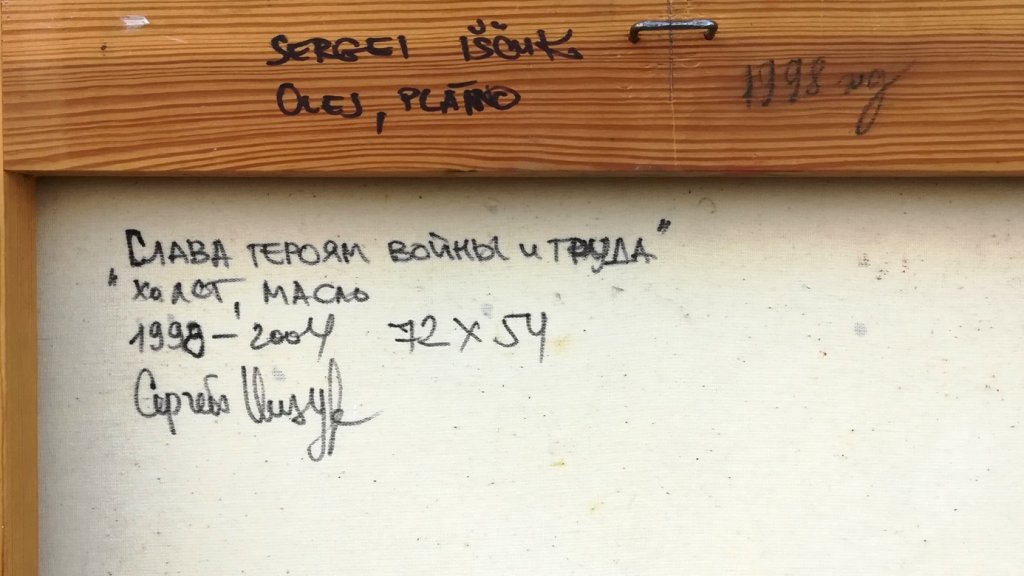 SERGEI IŠČUK
OLEJ, PLÁTNO
1998
"СЛАВА ГЕРОЯМ ВОЙНЫ И ТРУДА"
холст, МАСЛО
1998 – 2004 72 X 54
Сергей Ищук